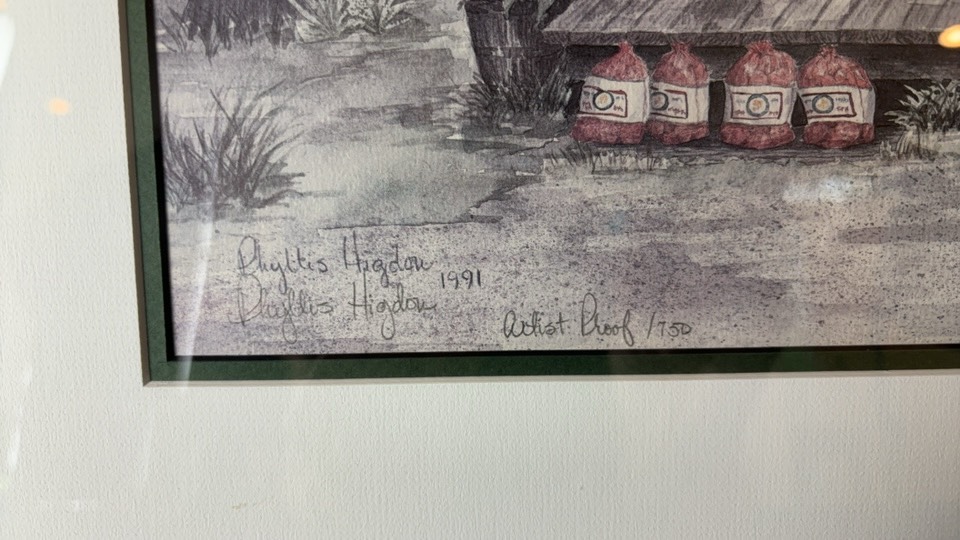 Phyllis Higdon 1991
Phyllis Higdon
Artist Proof /750